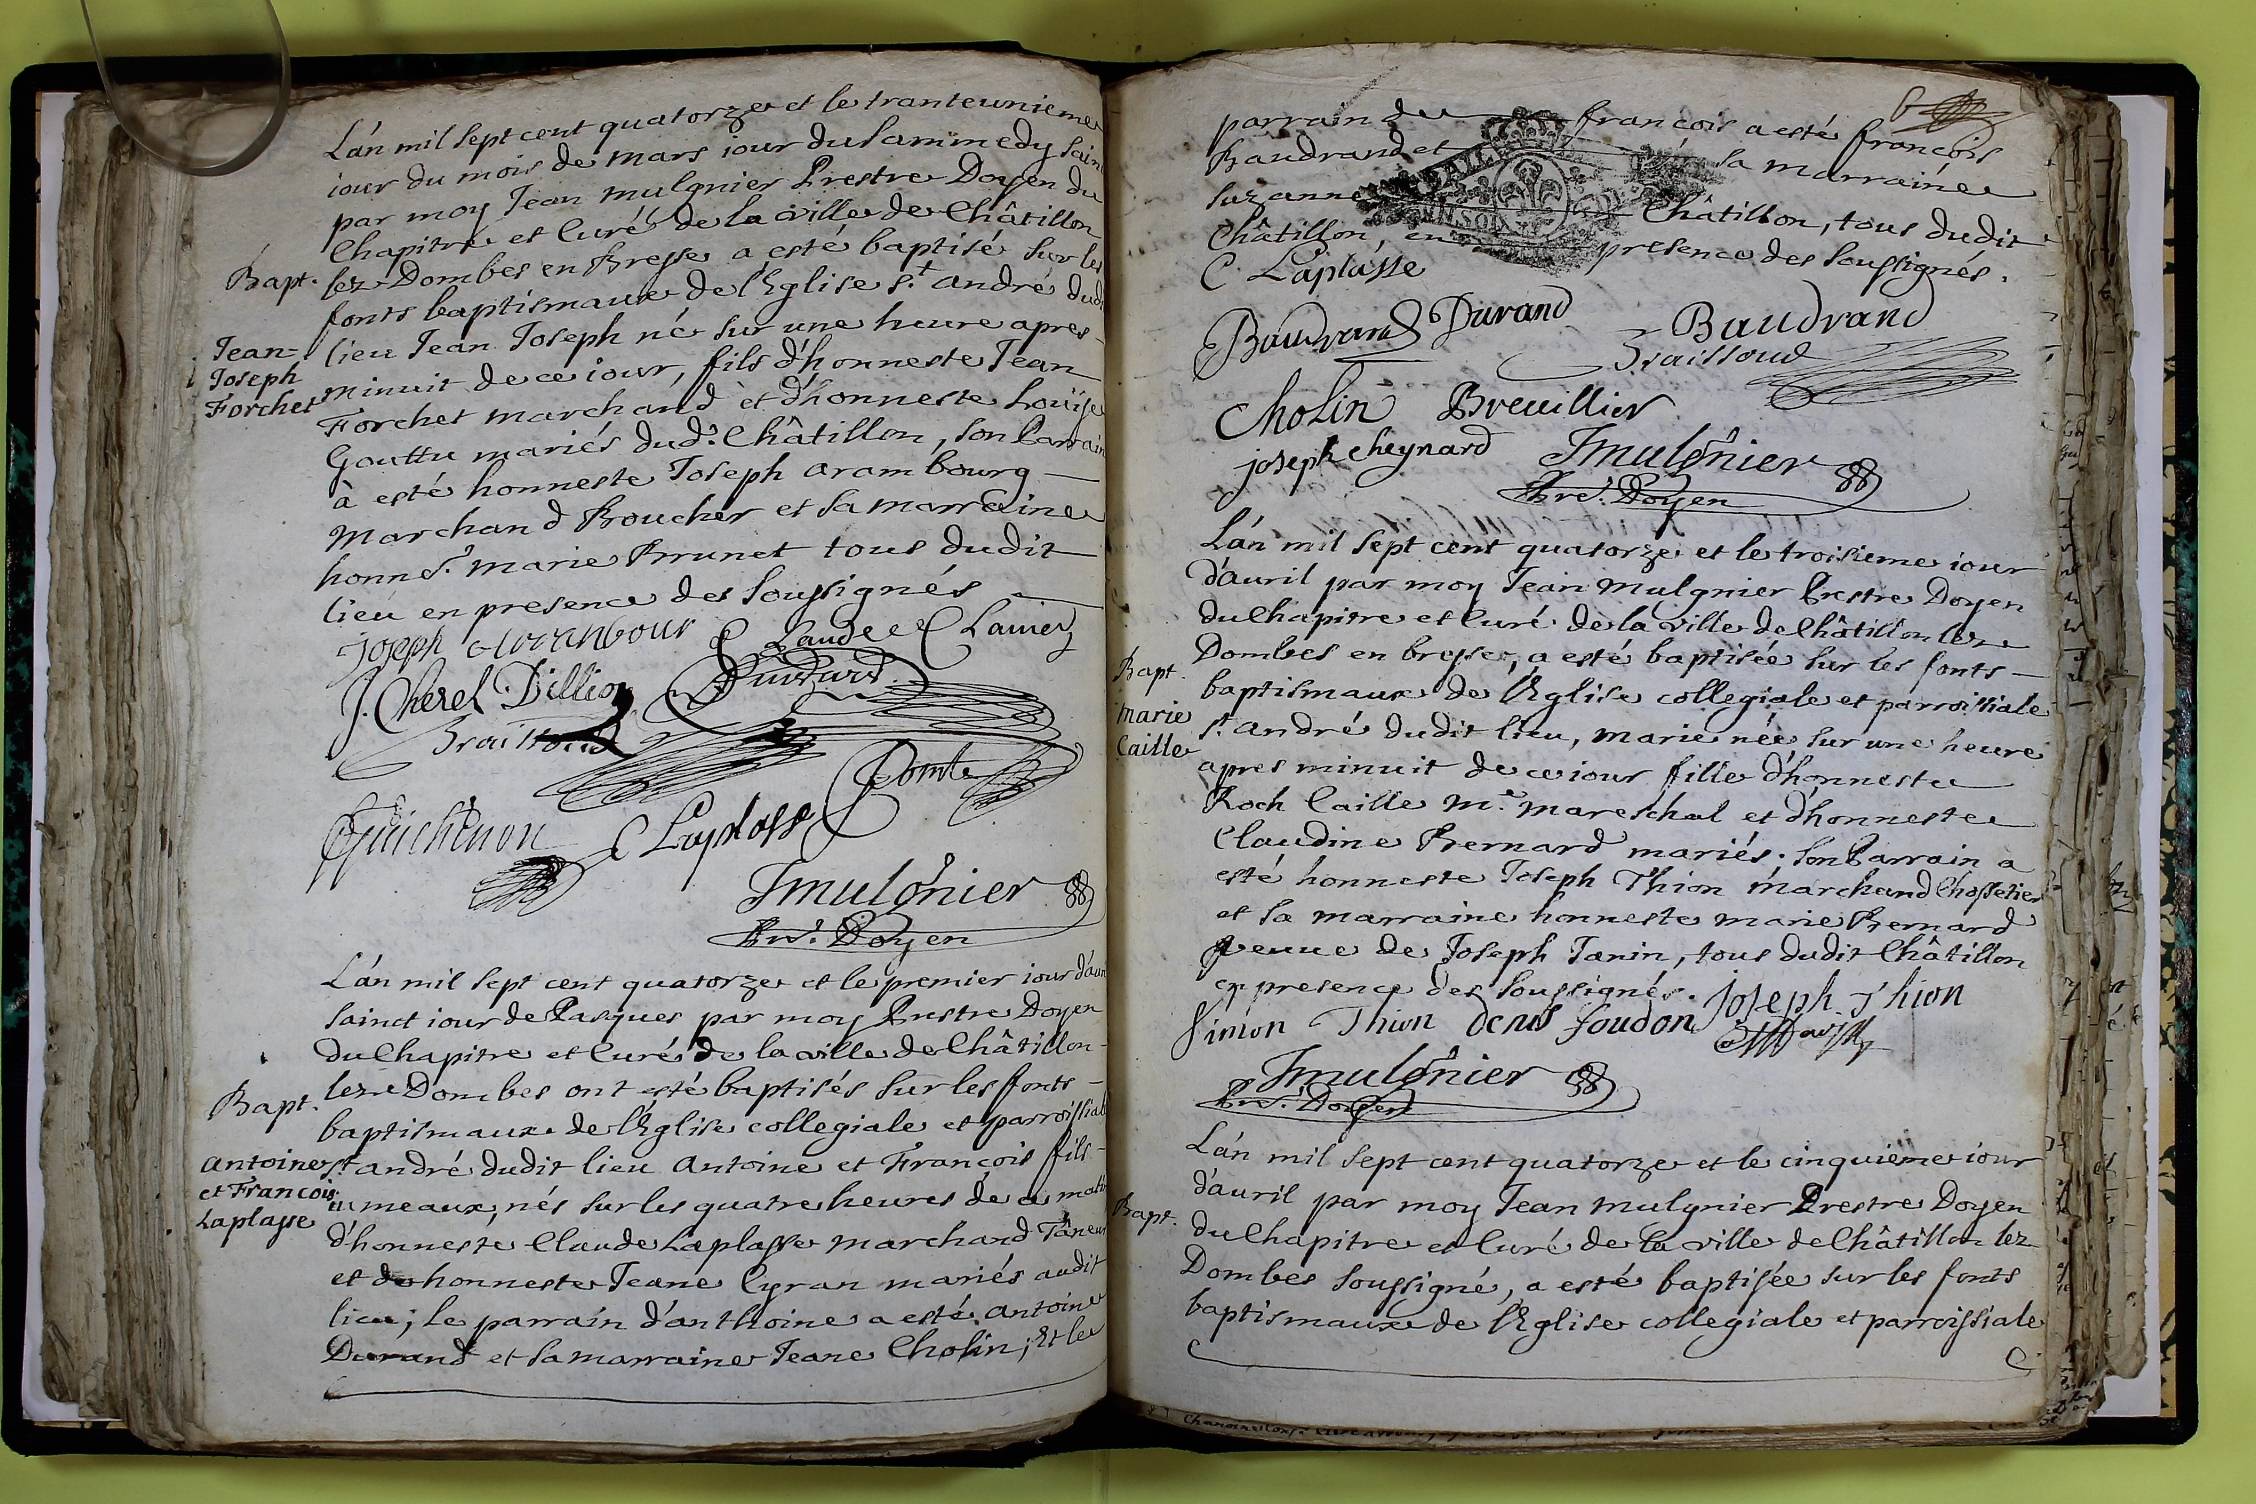 L'án mil sept cent quatorze et le tranteunieme
iour du mois de mars iour du Sammedy Sain
par moy Jean mulgnier Prestre Doyen du
Chapitre et Curé de la ville de Châtillon
Bapt. lez Dombes en Bresse a esté baptisé sur les
fonts baptismaux de l'Eglise s.t andré dud
Jean-
Joseph
Forchet
lieu Jean Joseph né sur une heure apres-
minuit de ce iour, fils d'honneste Jean
Forchet marchand et d'honneste Louïse
Gouttu mariés dud.t Châtillon, son Parrain
à esté honneste Joseph arambourg
Marchand Boucher et sa marraine
honne.s marie Brunet tous dudit
lieu en presence des soussignés
Joseph Laude C Lamez
J. Cherel Dillion
Braissoud
Comte
Guichenon C Laplasse
Jmulgnier
Prê. Doyen
L'án mil sept cent quatorze et le premier iour d'aur
sainct iour de Pasques par moy Prestre Doyen
du Chapitre et Curé de la ville de Châtillon-
Bapt. lez Dombes ont esté baptisés sur les fonts-
baptismaux de l'Eglise collegiale et parroissiale
Antoine
et François
Laplasse
s.t andré dudit lieu Antoine et François fils-
iumeaux, nés sur les quatre heures de ce matin
d'honneste Claude Laplasse marchand Tâneur
et de honneste Jeane Cyran mariés audit
lieu; le parrain d'anthoine a esté Antoine
Durand et sa marraine Jeane Cholin; Et le
6
parrain de françois a esté françois
Baudrand et sa marraine
suzanne Châtillon, tous dudit
Châtillon, en presence des soussignés.
C. Laplasse
Baudrand Durand Baudrand
Braissoud
Cholin Breuillier
joseph cheynard Jmulgnier
Prê. Doyen
L'án mil sept cent quatorze et le troisieme iour
d'auril par moy Jean mulgnier Prestre Doyen
du Chapitre et Curé de la ville de Châtillon lez
Bapt.
marie
Caille
Dombes en bresse, a esté baptisée sur les fonts-
baptismaux de l'Eglise collegiale et parroissiale
s.t andré dudit lieu, marie née sur une heure
apres minuit de ce iour fille d'honneste
Roch Caille m.e mareschal et d'honneste
Claudine Bernard mariés; son Parrain a
esté honneste Joseph Thion marchand Chossetier
et sa marraine honneste marie Bernard
veuue de Joseph Janin, tous dudit Châtillon
en presence des soussignés. Joseph Thion
Simon Thion denis foudon
Jmulgnier
Prê. Doyen
L'án mil sept cent quatorze et le cinquième iour
d'auril par moy Jean mulgnier Prestre Doyen
Bapt. du Chapitre et Curé de la ville de Châtillon lez
Dombes soussigné, a esté baptisée sur les fonts
baptismaux de l'Eglise collegiale et parroissiale